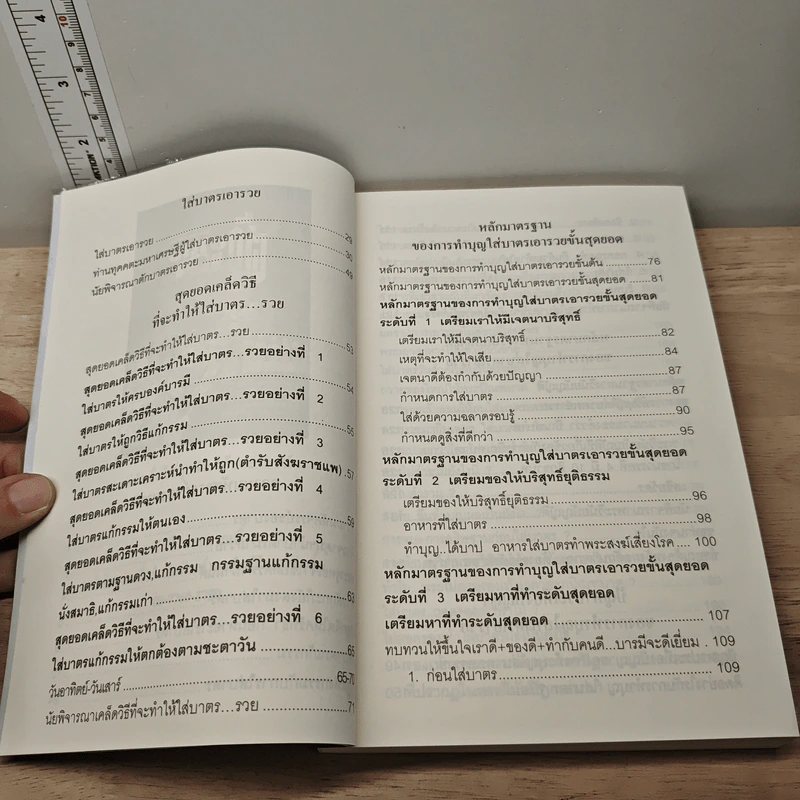 ใส่บาตรเอารวย
ใส่บาตรเอารวย 29
ท่านทุคคตะมหาเศรษฐีผู้ใส่บาตรเอารวย 30
นัยพิจารณาตักบาตรเอารวย 49
สุดยอดเคล็ดวิธี
ที่จะทำให้ใส่บาตร...รวย
สุดยอดเคล็ดวิธีที่จะทำให้ใส่บาตร...รวย 53
สุดยอดเคล็ดวิธีที่จะทำให้ใส่บาตร...รวยอย่างที่ 1
ใส่บาตรให้ครบองค์บารมี 54
สุดยอดเคล็ดวิธีที่จะทำให้ใส่บาตร...รวยอย่างที่ 2
ใส่บาตรให้ถูกวิธีแก้กรรม 56
สุดยอดเคล็ดวิธีที่จะทำให้ใส่บาตร...รวยอย่างที่ 3
ใส่บาตรสะเดาะเคราะห์นำทำให้ถูก(ตำรับสังฆราชแพ) 57
สุดยอดเคล็ดวิธีที่จะทำให้ใส่บาตร...รวยอย่างที่ 4
ใส่บาตรแก้กรรมให้ตนเอง 59
สุดยอดเคล็ดวิธีที่จะทำให้ใส่บาตร...รวยอย่างที่ 5
ใส่บาตรตามฐานดวง,แก้กรรม กรรมฐานแก้กรรม
นั่งสมาธิ,แก้กรรมเก่า 63
สุดยอดเคล็ดวิธีที่จะทำให้ใส่บาตร...รวยอย่างที่ 6
ใส่บาตรแก้กรรมให้ตกต้องตามชะตาวัน 65
วันอาทิตย์-วันเสาร์ 65-70
นัยพิจารณาเคล็ดวิธีที่จะทำให้ใส่บาตร...รวย 71
หลักมาตรฐาน
ของการทำบุญใส่บาตรเอารวยขั้นสุดยอด
หลักมาตรฐานของการทำบุญใส่บาตรเอารวยขั้นต้น 76
หลักมาตรฐานของการทำบุญใส่บาตรเอารวยขั้นสุดยอด 81
หลักมาตรฐานของการทำบุญใส่บาตรเอารวยขั้นสุดยอด
ระดับที่ 1 เตรียมเราให้มีเจตนาบริสุทธิ์
เตรียมเราให้มีเจตนาบริสุทธิ์ 82
เหตุที่จะทำให้ใจเสีย 84
เจตนาดีต้องกำกับด้วยปัญญา 87
กำหนดการใส่บาตร 87
ใส่ด้วยความฉลาดรอบรู้ 90
กำหนดดูสิ่งที่ดีกว่า 95
หลักมาตรฐานของการทำบุญใส่บาตรเอารวยขั้นสุดยอด
ระดับที่ 2 เตรียมของให้บริสุทธิ์ยุติธรรม
เตรียมของให้บริสุทธิ์ยุติธรรม 96
อาหารที่ใส่บาตร 98
ทำบุญ..ได้บาป อาหารใส่บาตรทำพระสงฆ์เสี่ยงโรค 100
หลักมาตรฐานของการทำบุญใส่บาตรเอารวยขั้นสุดยอด
ระดับที่ 3 เตรียมหาที่ทำระดับสุดยอด
เตรียมหาที่ทำระดับสุดยอด 107
ทบทวนให้ขึ้นใจเราดี+ของดี+ทำกับคนดี...บารมีจะดีเยี่ยม 109
1. ก่อนใส่บาตร 109